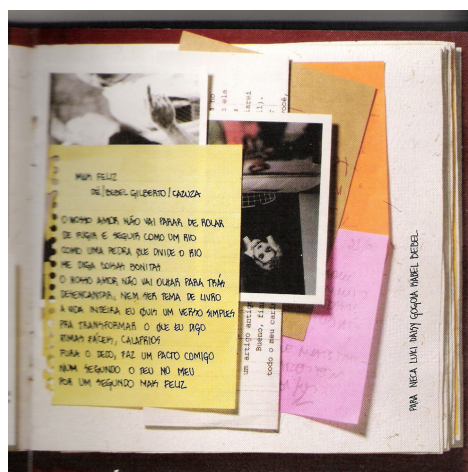 MAIS FELIZ
DÉ/BEBEL GILBERTO/CAZUZA
O NOSSO AMOR NÃO VAI PARAR DE ROLAR
DE FUGIR E SEGUIR COMO UM RIO
COMO UMA PEDRA QUE DIVIDE O RIO
ME DIGA COISAS BONITAS
O NOSSO AMOR NÃO VAI OLHAR PARA TRÁS
DESENCANTAR, NEM SER TEMA DE LIVRO
A VIDA INTEIRA EU QUIS UM VERSO SIMPLES
PRA TRANSFORMAR O QUE EU DIGO
RIMAS FÁCEIS, CALAFRIOS
FURA O DEDO, FAZ UM PACTO COMIGO
NUM SEGUNDO O TEU NO MEU
POR UM SEGUNDO MAIS FELIZ
um artigo antig
Bueno, fia
todo o meu cari
PARA NECA LUKI DADY GOGOIA MABEL BEBEL